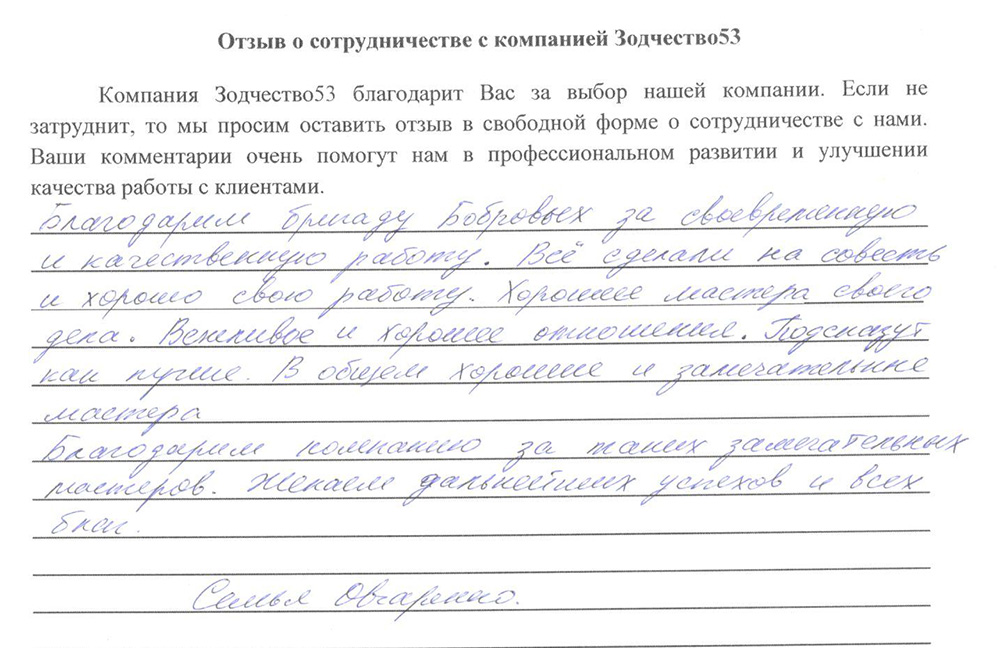 Отзыв о сотрудничестве с компанией Зодчество53
Компания Зодчество53 благодарит Вас за выбор нашей компании. Если не
затруднит, то мы просим оставить отзыв в свободной форме о сотрудничестве с нами.
Ваши комментарии очень помогут нам в профессиональном развитии и улучшении
качества работы с клиентами.
Благодарим бригаду Бобровых за своевременную
и качественную работу. Всё сделали на совесть
и хорошо свою работу. Хорошее мастера своего
дела. Вежливое и хорошее отношения. Подскажут
как лучше. В общем хорошие и замечательные
мастера
Благодарим компанию за таких замечательных
мастеров. Желаем дальнейших успехов и всех
благ.
Семья Овчаренко.